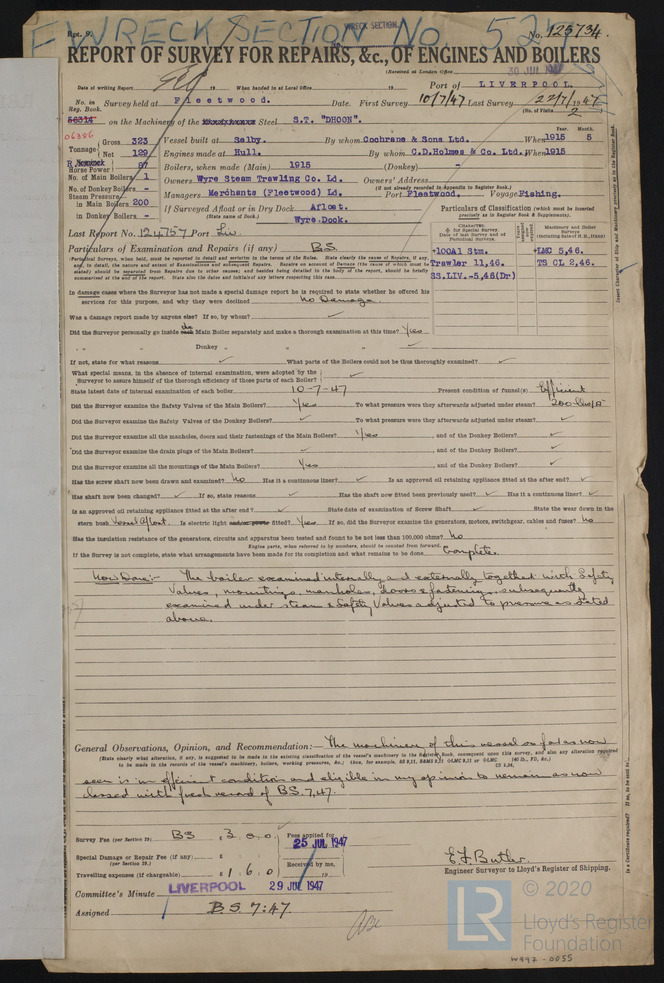 WRECK SECTION No 527
WRECK SECTION
Rpt. 9.
No. 125734
REPORT OF SURVEY FOR REPAIRS, &c., OF ENGINES AND BOILERS
(Received at London Office 30 JUL 1947
Date of writing Report 19 When handed in at Local Office 19 Port of LIVERPOOL.
No. in Reg. Book. Survey held at Fleetwood. Date. First Survey 10/7/47 Last Survey 22/7/1947
(No. of Visits 2
58314 on the Machinery of the Steel S.T. "DHOON".
06386
Tonnage Gross 323 Vessel built at Selby. By whom Cochrane & Sons Ltd. When 1915 Year. 5 Month.
Net 129 Engines made at Hull. By whom C.D.Holmes & Co. Ltd. When 1915
Horse Power 87 Boilers, when made (Main) 1915 (Donkey) -
No. of Main Boilers 1 Owners Wyre Steam Trawling Co. Ld. Owners' Address
(if not already recorded in Appendix to Register Book.)
No. of Donkey Boilers - Managers Merchants (Fleetwood) Ld. Port Fleetwood. Voyage Fishing.
Steam Pressure in Main Boilers 200 If Surveyed Afloat or in Dry Dock Afloat.
in Donkey Boilers - (State name of Dock.) Wyre Dock.
Particulars of Classification (which must be inserted precisely as in Register Book & Supplements).
Last Report No. 124757 Port Liv
Particulars of Examination and Repairs (if any) BS
CHARACTER. for Special Survey. Date of last Survey and of Periodical Surveys.
Machinery and Boiler Surveys (including date of N.B., if any)
+100A1 Stm. +LMC 5,46.
Trawler 11,46. TS CL 2,46.
SS.LIV.-5,46(Dr)
In damage cases where the Surveyor has not made a special damage report he is required to state whether he offered his
services for this purpose, and why they were declined No Damage
Was a damage report made by anyone else? If so, by whom?
Did the Surveyor personally go inside the Main Boiler separately and make a thorough examination at this time? Yes
„ „ Donkey „ „
If not, state for what reasons What parts of the Boilers could not be thus thoroughly examined?
What special means, in the absence of internal examination, were adopted by the
Surveyor to assure himself of the thorough efficiency of those parts of each Boiler?
State latest date of internal examination of each boiler 10-7-47 Present condition of funnel(s) Efficient
Did the Surveyor examine the Safety Valves of the Main Boilers? Yes To what pressure were they afterwards adjusted under steam? 200 lbs/□"
Did the Surveyor examine the Safety Valves of the Donkey Boilers? To what pressure were they afterwards adjusted under steam?
Did the Surveyor examine all the manholes, doors and their fastenings of the Main Boilers? Yes , and of the Donkey Boilers?
Did the Surveyor examine the drain plugs of the Main Boilers? , and of the Donkey Boilers?
Did the Surveyor examine all the mountings of the Main Boilers? Yes , and of the Donkey Boilers?
Has the screw shaft now been drawn and examined? No Has it a continuous liner? Is an approved oil retaining appliance fitted at the after end?
Has shaft now been changed? If so, state reasons Has the shaft now fitted been previously used? Has it a continuous liner?
Is an approved oil retaining appliance fitted at the after end? State date of examination of Screw Shaft State the wear down in the
stern bush Vessel afloat. Is electric light fitted? Yes If so, did the Surveyor examine the generators, motors, switchgear, cables and fuses? No
Has the insulation resistance of the generators, circuits and apparatus been tested and found to be not less than 100,000 ohms? No
Engine parts, when referred to by numbers, should be counted from forward.
If the Survey is not complete, state what arrangements have been made for its completion and what remains to be done Complete.
Now Done:- The boiler examined internally and externally together with Safety
Valves, mountings, manholes, doors & fastenings, subsequently
examined under steam & Safety Valves adjusted to pressure as stated
above.
General Observations, Opinion, and Recommendation:- The machinery of this vessel so far as now
(State clearly what alteration, if any, is suggested to be made in the existing classification of the vessel's machinery in the Register Book, consequent upon this survey, and also any alteration required
to be made in the records of the vessel's machinery, boilers, working pressures, &c.)
seen is in efficient condition and eligible in my opinion to remain as now
classed with fresh record of BS. 7,47.
Survey Fee (per Section 29) BS £ 3 . 0 . 0 Fees applied for
25 JUL 1947
Special Damage or Repair Fee (if any) £
(per Section 29.) Received by me,
Travelling expenses (if chargeable) £ 1 . 6 . 0 19
E.F. Butler
Engineer Surveyor to Lloyd's Register of Shipping.
Committee's Minute LIVERPOOL 29 JUL 1947
Assigned B.S. 7:47.
© 2020
LR
Lloyd's Register
Foundation
W997-0055